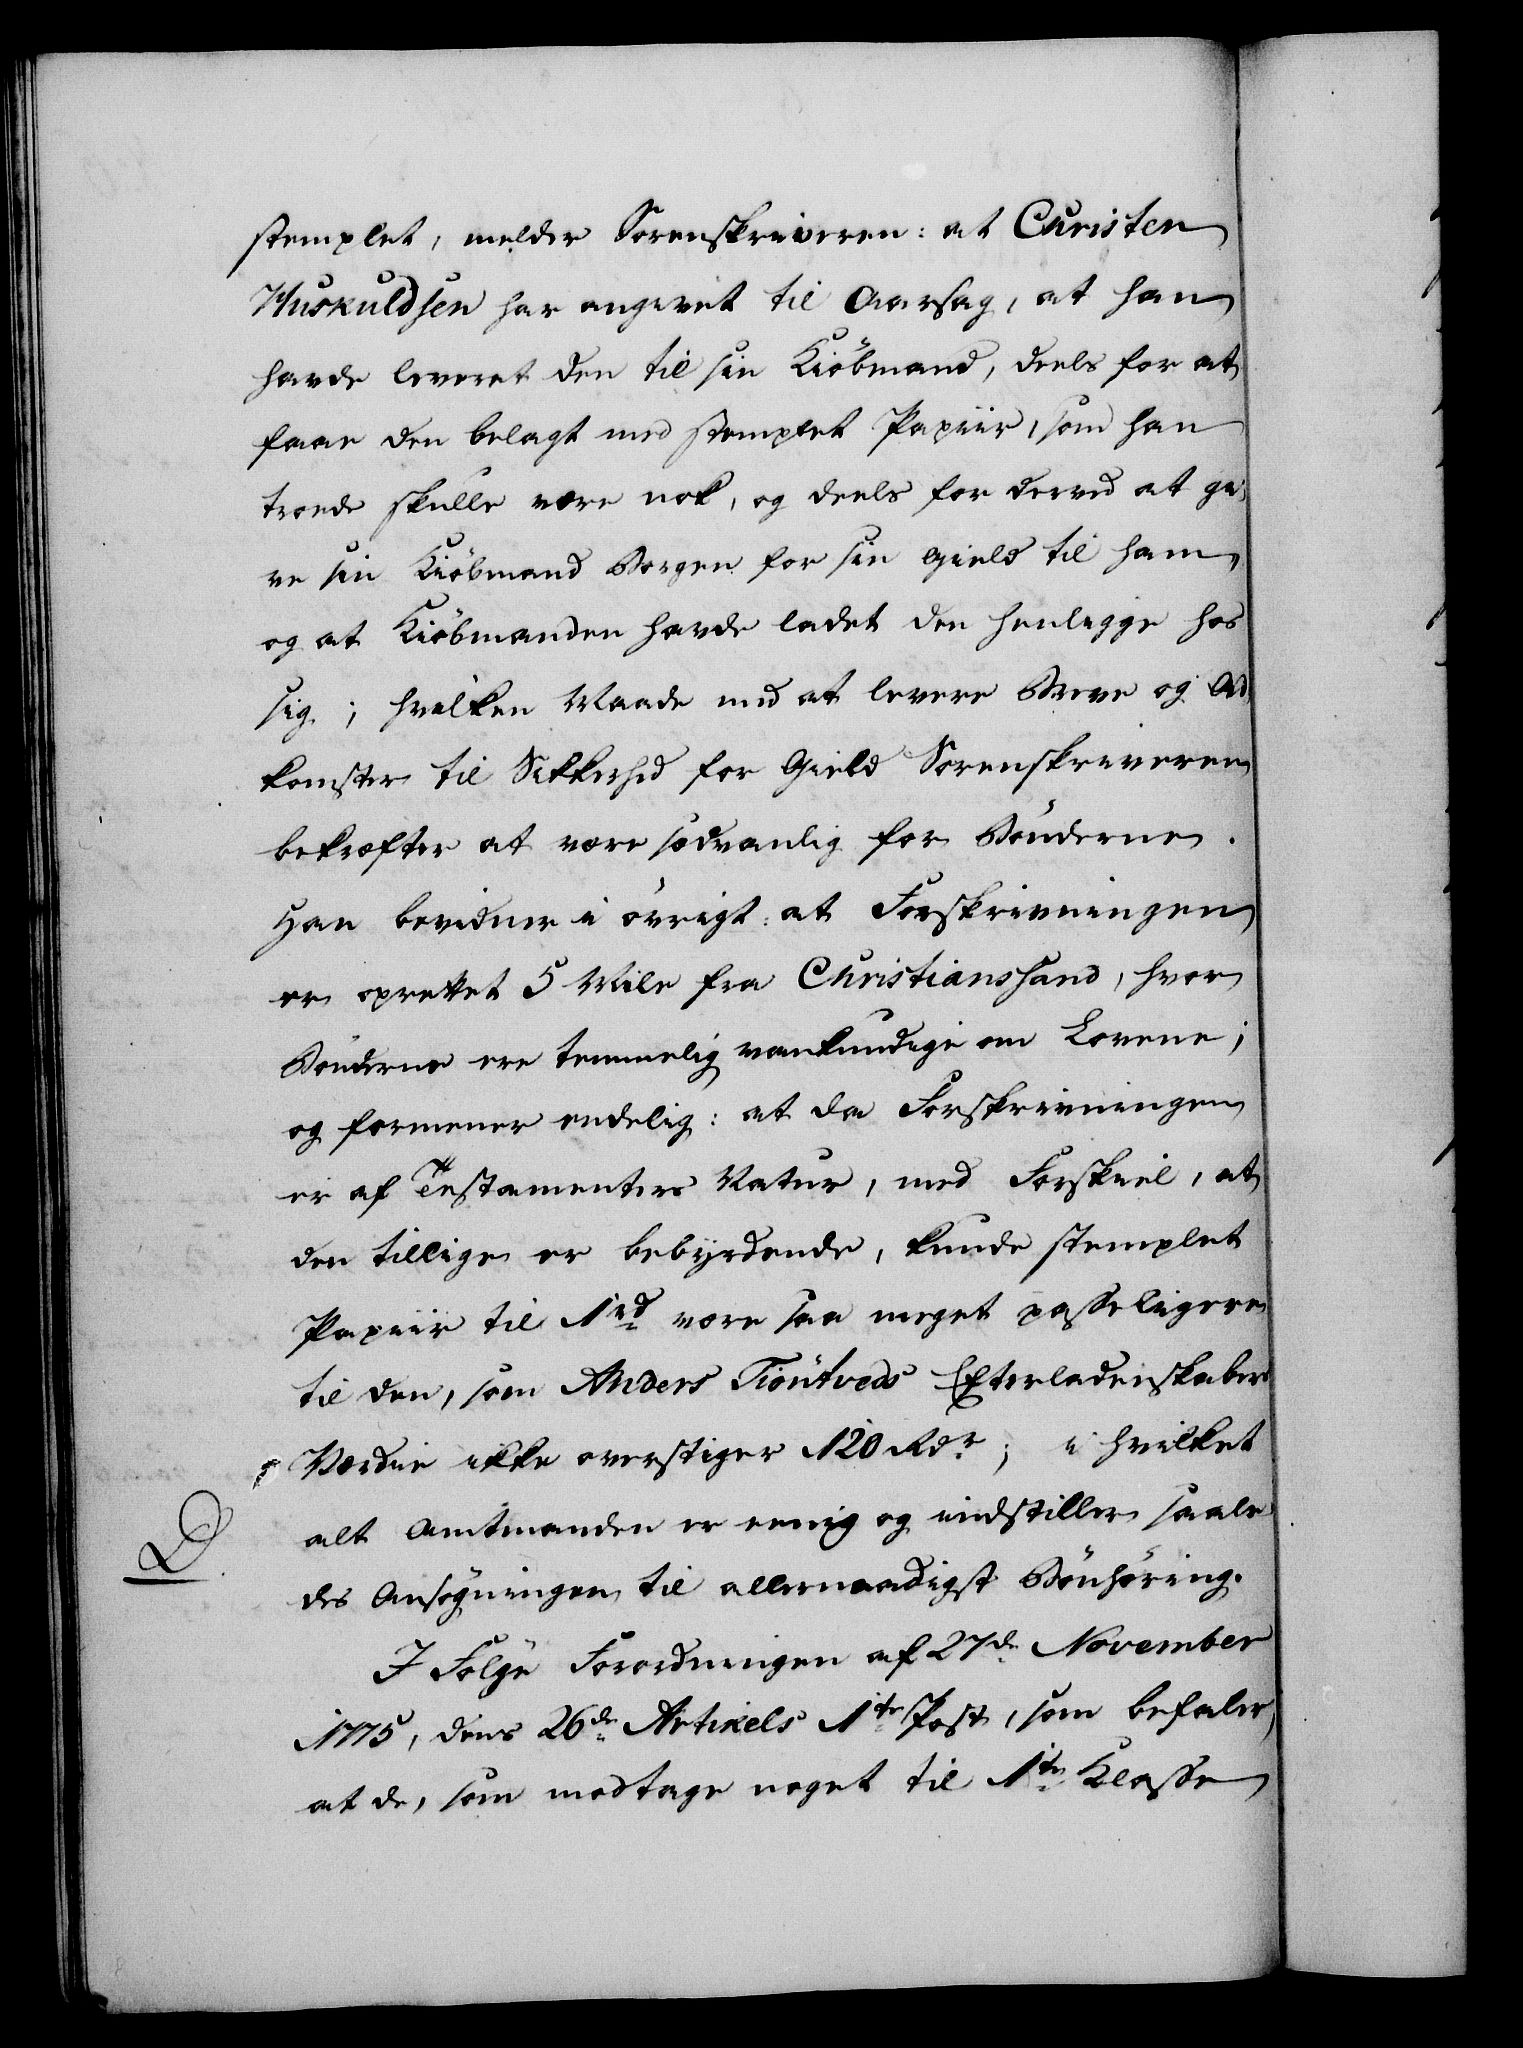 stemplet, melder Sorenskriveren: at Christen
Huskuldsen har angivet til Aarsag, at han
havde leveret den til sin Kiöbmand, deels for at
faae den belagt med stemplet Papiir, som han
troede skulle være nok, og deels for derved at gi-
ve sin Kiöbmand Borgen for sin Gield til ham,
og at Kiöbmanden havde ladet den henligge hos
sig; hvilken Maade med at levere Breve og Ad-
komster til Sikkerhed for Gield Sorenskriveren
bekræfter at være sædvanlig for Bönderne.
Han bevidner i övrigt: at Forskrivningen
er oprettet 5 Mile fra Christianssand, hvor
Bönderne ere temmelig vankundige om Lovene;
og formener endelig: at da Forskrivningen
er af Testamenters Natur, med Forskiel, at
den tillige er bebyrdende, kunde stemplet
Papiir til 1 rd være saa meget passeligere
til den, som Anders Tiöntveds Efterladenskabers
Værdie ikke overstiger 120 Rdr; i hvilket
alt Amtmanden er eenig og indstiller saale-
des Ansøgningen til allernaadigst Bönhöring.
D.
I Følge Forordningen af 27de November
1775, dens 26de Artikels 1te Post, som befaler,
at de, som modtage noget til 1te Klasse